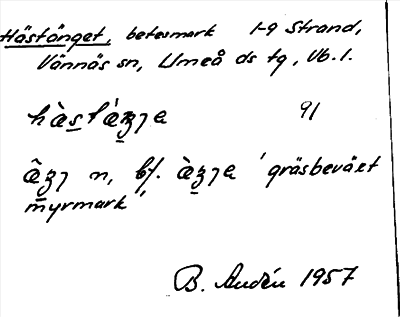 Hästänget, betesmark 1-9 Strand,
Vännäs sn, Umeå ds tg, Vb. l.
hàstáʒɿe 91
ʒɿ n, bf. àʒɿe 'gräsbeväxt
myrmark'
B. Audén 1957